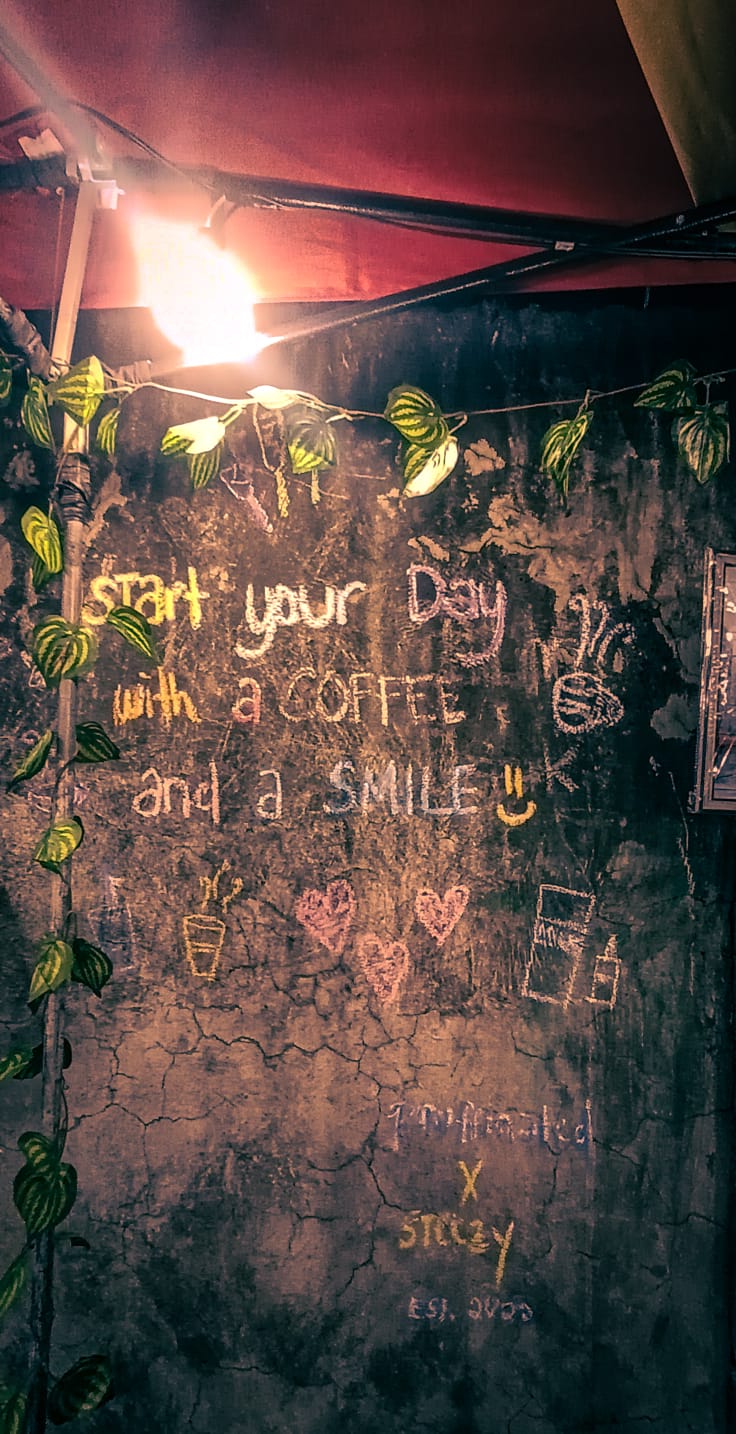 start your Day
with a COFFEE
and a SMILE
X
EST.